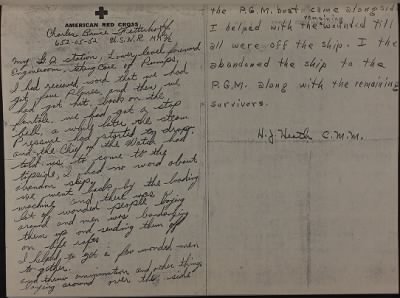 AMERICAN RED CROSS
Charles Bruce
652-05-52 U.S.N.R.
My G.Q. station, Lower level forward
Engineroom, taking care of Pumps,
I had received word that we had
got five Planes, and then we
had got hit. back on the
we had got a stop
bell, a while later the steam
Pressure had started to drop,
and the Chief of the Watch had
told us to come to the
topside, I had no word about
abandon ship.
we went back by the loading
machine and there was a
lot of wonded people lying
around and men was bandaging
them up and sending them off
on life rafts
I helped to get a few wonded men
to gether.
and threw ammunation and other things
laying around over the side
the P.G.M. boat came alongside
I helped with the remaining wounded till
all were off the ship. I the
abandoned the ship to the
P.G.M. along with the remaining
survivors.
H.J. C.M.M.